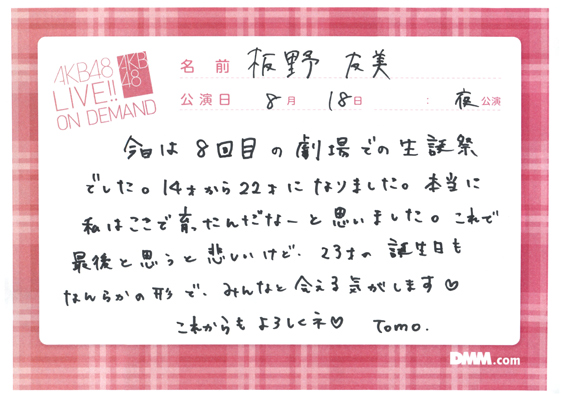 AKB48
LIVE!!
ON DEMAND
AKB
48
名前 板野 友美
公演日 8月 18日 : 夜公演
今日は8回目の劇場での生誕祭
でした。14才から22才になりました。本当に
私はここで育ったんだなーと思いました。これで
最後と思うと悲しいけど、23才の誕生日も
なんらかの形で、みんなと会える気がします♡
これからもよろしくネ♡ Tomo.
DMM.com